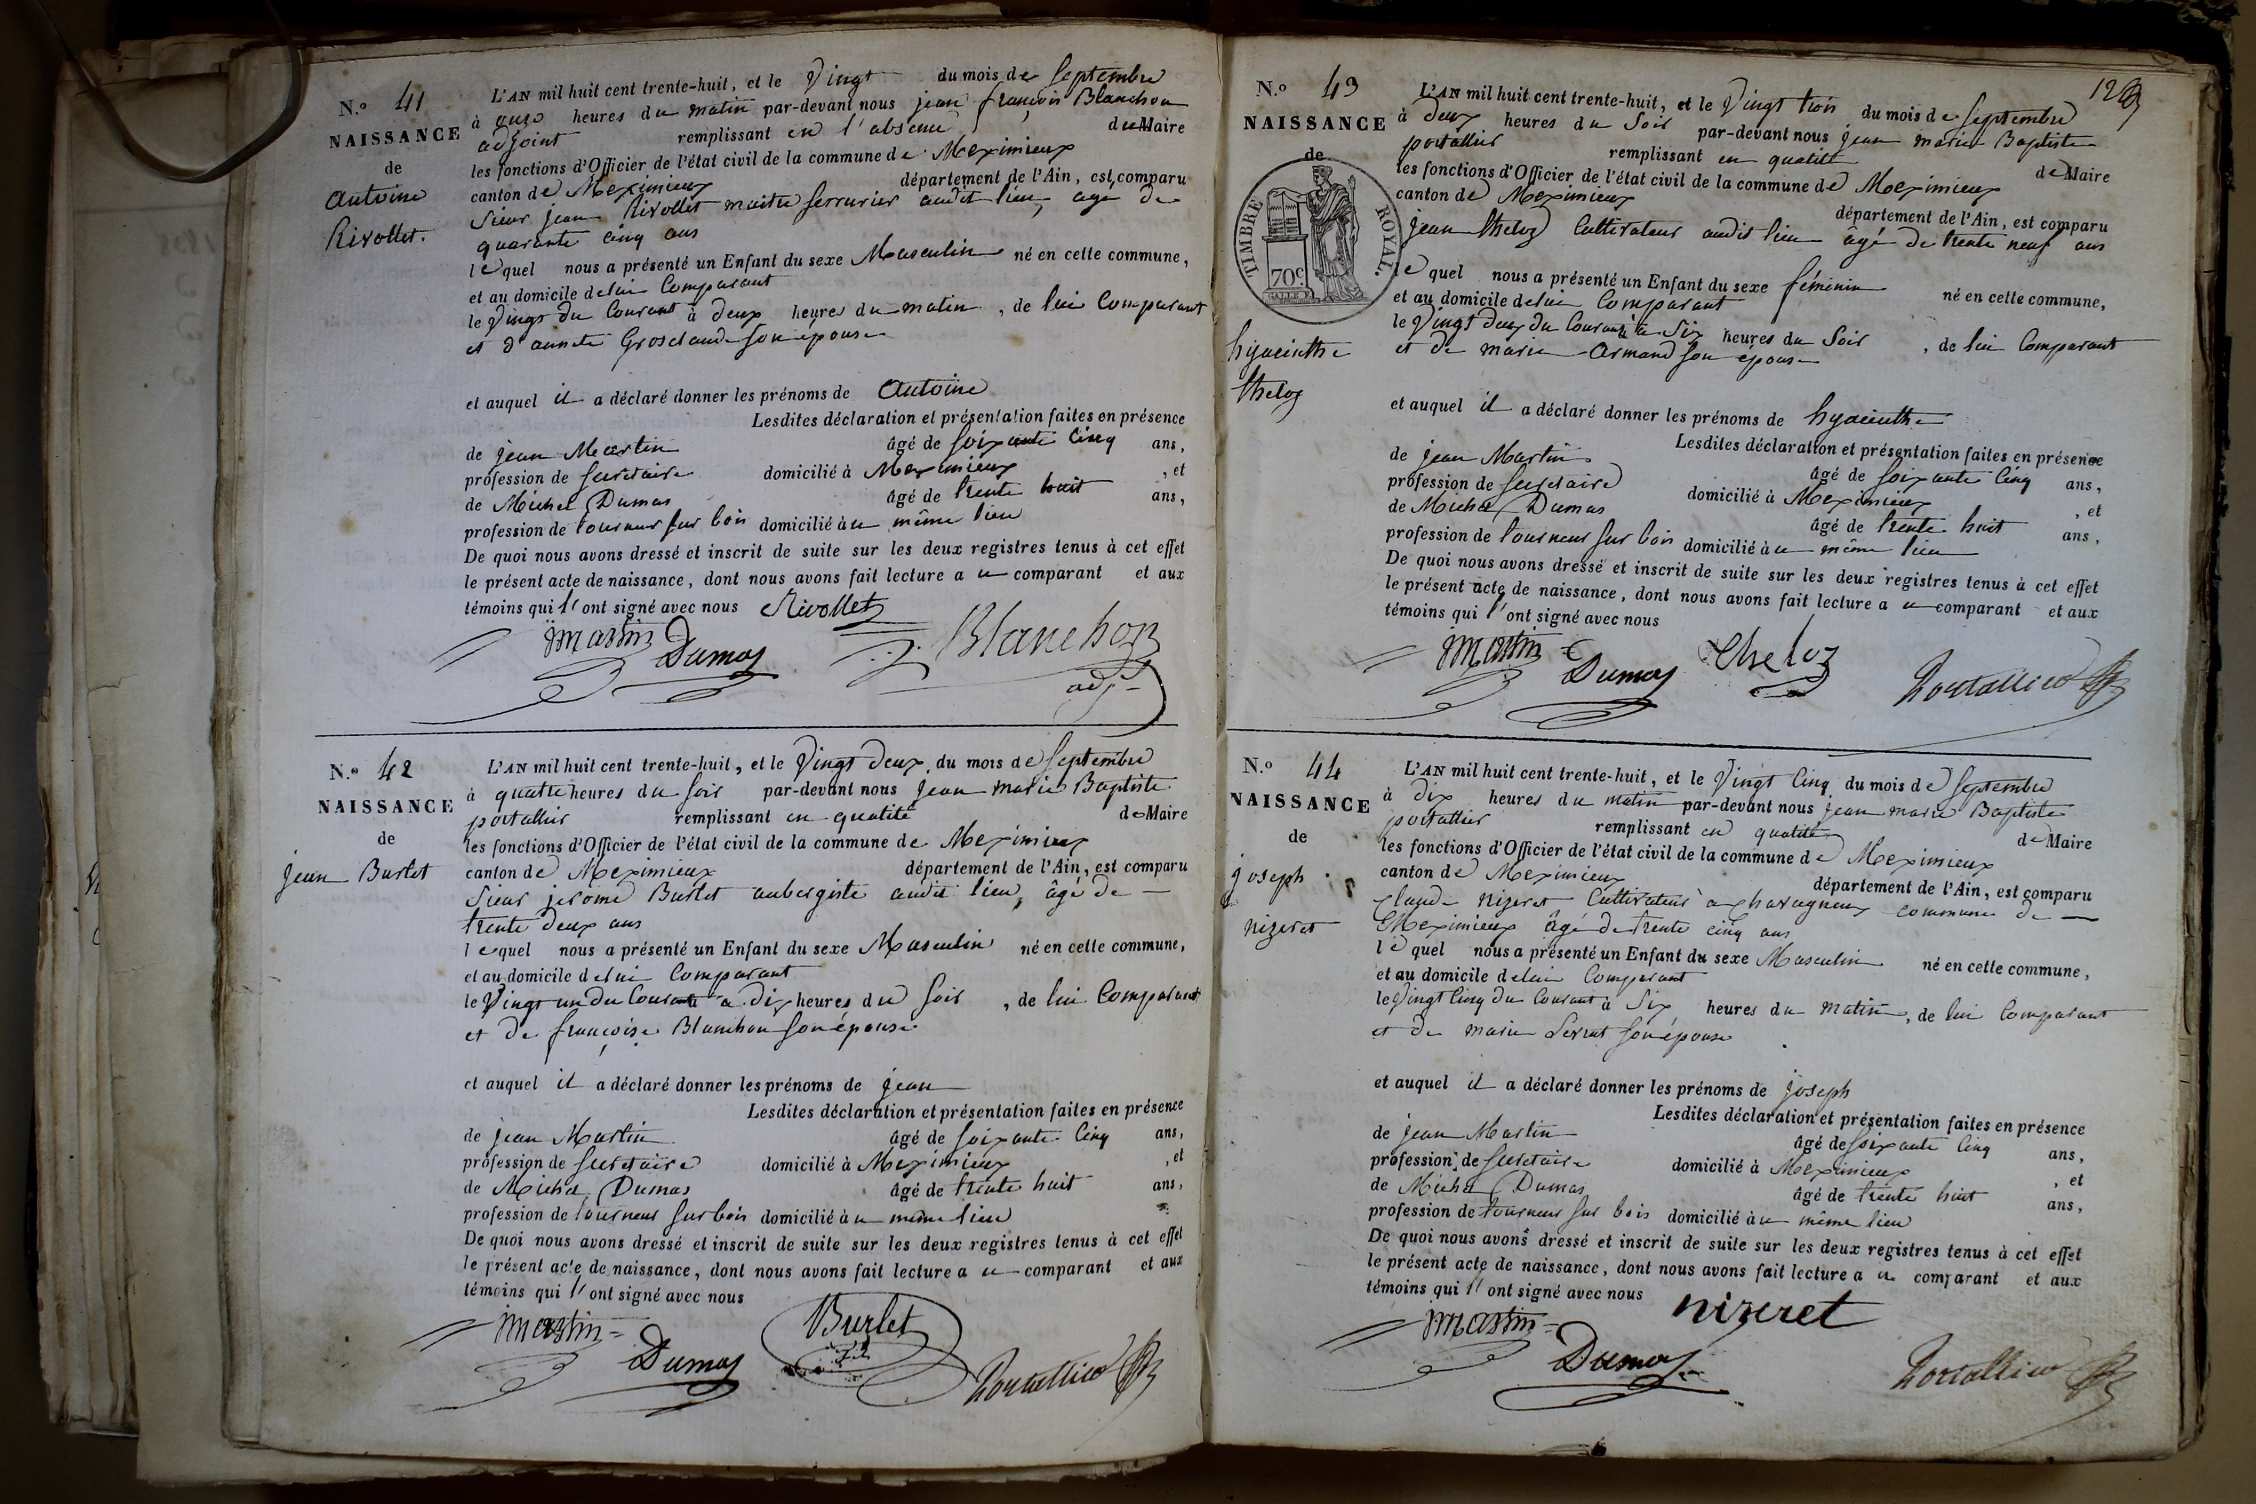 N.o 41
NAISSANCE
de
Antoine
Rivollet.
L'AN mil huit cent trente-huit, et le Vingt du mois de Septembre
à onze heures du matin par-devant nous jean françois Blanchon
adjoint remplissant en l'absence du Maire
les fonctions d'Officier de l'état civil de la commune de Meximieux
canton de Meximieux département de l'Ain, est comparu
Sieur jean Rivollet maitre serrurier audit lieu, agé de
quarante cinq ans
lequel nous a présenté un Enfant du sexe Masculin né en cette commune,
et au domicile de lui Comparant
le Vingt du Courant à deux heures du matin, de lui Comparant
et d'annete Grosclaude son épouse
et auquel il a déclaré donner les prénoms de Antoine
Lesdites déclaration et présentation faites en présence
de jean Martin âgé de soixante Cinq ans,
profession de secretaire domicilié à Meximieux, et
de Michel Dumas âgé de trente huit ans,
profession de tourneur sur bois domicilié au même lieu
De quoi nous avons dressé et inscrit de suite sur les deux registres tenus à cet effet
le présent acte de naissance, dont nous avons fait lecture au comparant et aux
témoins qui l'ont signé avec nous Rivollet
jmartin Dumas Blanchon
adj
N.o 42
NAISSANCE
de
jean Burlet
L'AN mil huit cent trente-huit, et le Vingt deux du mois de Septembre
à quatre heures du soir par-devant nous jean marie Baptiste
portallier remplissant en qualité de Maire
les fonctions d'Officier de l'état civil de la commune de Meximieux
canton de Meximieux département de l'Ain, est comparu
Sieur jerome Burlet aubergiste audit lieu, âgé de
trente deux ans
lequel nous a présenté un Enfant du sexe Masculin né en cette commune,
et au domicile de lui Comparant
le Vingt un du Courant à dix heures du soir, de lui Comparant
et de françoise Blanchon son épouse
et auquel il a déclaré donner les prénoms de jean
Lesdites déclaration et présentation faites en présence
de jean Martin âgé de soixante Cinq ans,
profession de secretaire domicilié à Meximieux, et
de Michel Dumas âgé de trente huit ans,
profession de tourneur sur bois domicilié au même lieu
De quoi nous avons dressé et inscrit de suite sur les deux registres tenus à cet effet
le présent acte de naissance, dont nous avons fait lecture au comparant et aux
témoins qui l'ont signé avec nous
jmartin Dumas Burlet Portallier
N.o 43
NAISSANCE
de
TIMBRE ROYAL.
70c
hyacinthe
theloz
L'AN mil huit cent trente-huit, et le Vingt trois du mois de Septembre
à deux heures du Soir par-devant nous jean marie Baptiste
portallier remplissant en qualité de Maire
les fonctions d'Officier de l'état civil de la commune de Meximieux
canton de Meximieux département de l'Ain, est comparu
jean theloz Cultivateur audit lieu âgé de trente neuf ans
lequel nous a présenté un Enfant du sexe féminin né en cette commune,
et au domicile de lui Comparant
le Vingt deux du Courant à Six heures du Soir, de lui Comparant
et de marie Armand son épouse
et auquel il a déclaré donner les prénoms de hyacinthe
Lesdites déclaration et présentation faites en présence
de jean Martin âgé de soixante Cinq ans,
profession de secretaire domicilié à Meximieux, et
de Michel Dumas âgé de trente huit ans,
profession de tourneur sur bois domicilié au même lieu
De quoi nous avons dressé et inscrit de suite sur les deux registres tenus à cet effet
le présent acte de naissance, dont nous avons fait lecture au comparant et aux
témoins qui l'ont signé avec nous
jmartin Dumas Theloz Portallier
N.o 44
NAISSANCE
de
joseph
nizeret
L'AN mil huit cent trente-huit, et le Vingt Cinq du mois de Septembre
à dix heures du matin par-devant nous jean marie Baptiste
portallier remplissant en qualité de Maire
les fonctions d'Officier de l'état civil de la commune de Meximieux
canton de Meximieux département de l'Ain, est comparu
Claude nizeret Cultivateur à Chavagneux commune de
Meximieux âgé de trente cinq ans
lequel nous a présenté un Enfant du sexe Masculin né en cette commune,
et au domicile de lui Comparant
le Vingt Cinq du Courant à Six heures du matin, de lui Comparant
et de marie son épouse
et auquel il a déclaré donner les prénoms de joseph
Lesdites déclaration et présentation faites en présence
de jean Martin âgé de soixante Cinq ans,
profession de secretaire domicilié à Meximieux, et
de Michel Dumas âgé de trente huit ans,
profession de tourneur sur bois domicilié au même lieu
De quoi nous avons dressé et inscrit de suite sur les deux registres tenus à cet effet
le présent acte de naissance, dont nous avons fait lecture au comparant et aux
témoins qui l'ont signé avec nous nizeret
jmartin Dumas Portallier